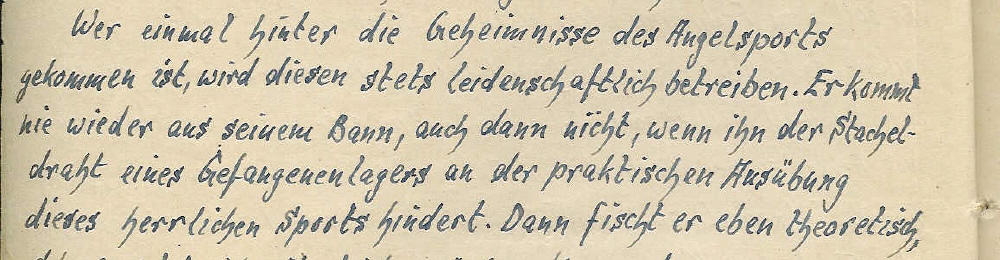 Wer einmal hinter die Geheimnisse des Angelsports
gekommen ist, wird diesen stets leidenschaftlich betreiben. Er kommt
nie wieder aus seinem Bann, auch dann nicht, wenn ihn der Stachel-
draht eines Gefangenenlagers an der praktischen Ausübung
dieses herrlichen Sports hindert. Dann fischt er eben theoretisch,